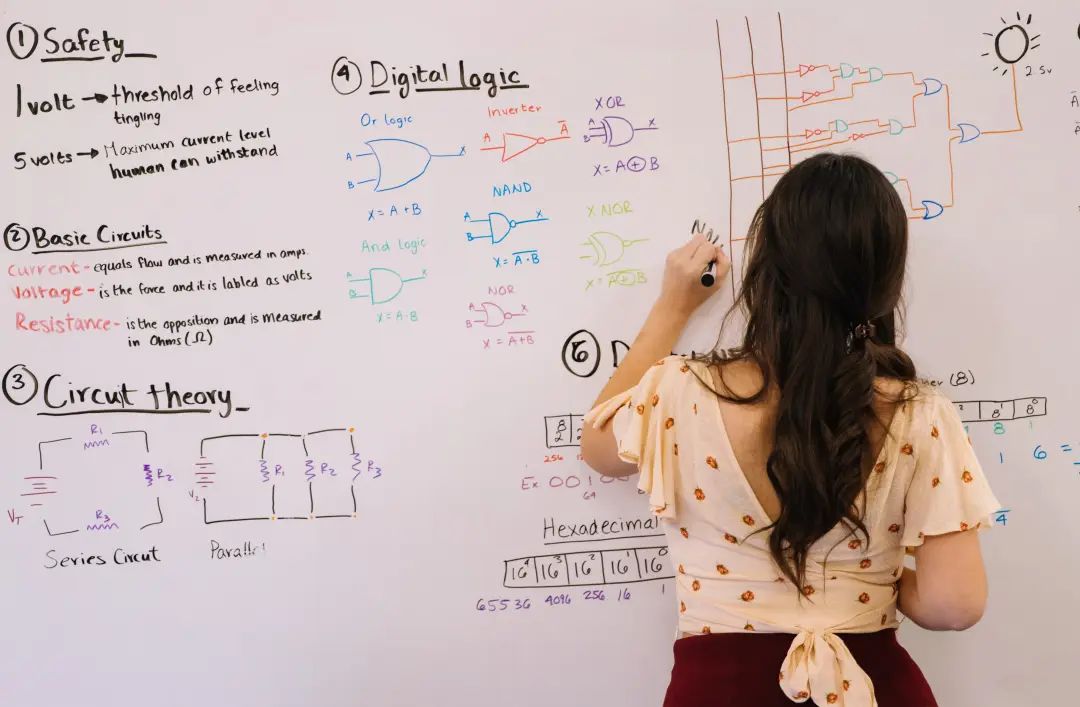 ① Safety
1 volt → threshold of feeling
tingling
5 volts → Maximum current level
human can withstand
② Basic Circuits
Current - equals flow and is measured in amps.
Voltage - is the force and it is labled as volts
Resistance - is the opposition and is measured
in Ohms (Ω)
③ Circuit theory
R1
R2
R3
VT
Series Circut
R1
R2
R3
V2
Parallel
④ Digital logic
Or logic
A
B
X
X = A + B
Inverter
A
A̅
XOR
A
B
X
X = A ⊕ B
NAND
A
B
X
X = \overline{A · B}
X NOR
X = \overline{A ⊕ B}
And logic
A
B
X
X = A · B
NOR
A
B
X
X = \overline{A + B}
2.5v
⑤
(8)
8¹ 8⁰
8 1
256
Ex 001
64
1 6 =
4
Hexadecimal
16⁴ 16³ 16² 16¹ 16⁰
65536 4096 256 16 1